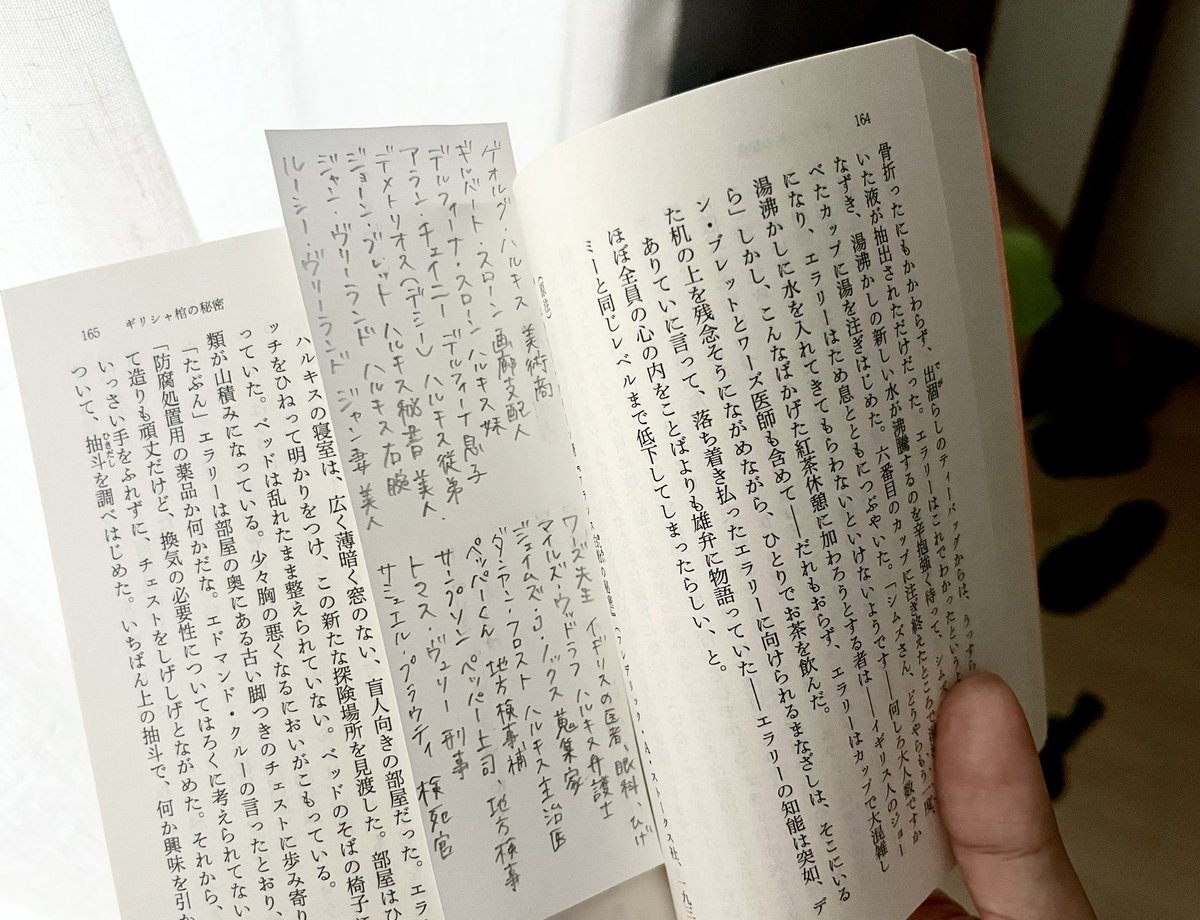 164
骨折ったにもかかわらず、出涸らしのティーバッグからは、うっすら
いた液が抽出されただけだった。エラリーはこれでわかったというよ
なずき、湯沸かしの新しい水が沸騰するのを辛抱強く待って、シムズ
べたカップに湯を注ぎはじめた。六番目のカップに注ぎ終えたところで
になり、エラリーはため息とともにつぶやいた。「シムズさん、どうやらもう一度、
湯沸かしに水を入れてきてもらわないといけないようです――何しろ大人数ですか
ら」しかし、こんなばかげた紅茶休憩に加わろうとする者は――イギリス人のジョー
ン・ブレットとワーズ医師も含めて――だれもおらず、エラリーはカップで大混雑し
た机の上を残念そうにながめながら、ひとりでお茶を飲んだ。
ありていに言って、落ち着き払ったエラリーに向けられるまなざしは、そこにいる
ほぼ全員の心の内をことばよりも雄弁に物語っていた――エラリーの知能は突如、デ
ミーと同じレベルまで低下してしまったらしい、と。
ゲオルグ・ハルキス 美術商
ギルバート・スローン 画廊支配人
デルフィーナ・スローン ハルキス妹
アラン・チェイニー デルフィーナ息子
デメトリオス(デミー) ハルキス従弟
ジョーン・ブレット ハルキス秘書 美人.
ジャン・ヴリーランド ハルキス右腕
ルーシー・ヴリーランド ジャン妻 美人
ワーズ先生 イギリスの医者、眼科、ひげ
マイルズ・ウッドラフ ハルキス弁護士
ジェイムズ・J・ノックス 蒐集家
ダンカン・フロスト ハルキス主治医
ペッパーくん 地方検事補
サンプソン ペッパー上司、地方検事
トマス・ヴェリー 刑事
サミュエル・プラウティ 検死官
165 ギリシャ棺の秘密
ハルキスの寝室は、広く薄暗く窓のない、盲人向きの部屋だった。エラ
ッチをひねって明かりをつけ、この新たな探険場所を見渡した。部屋はひ
っていた。ベッドは乱れたまま整えられていない。ベッドのそばの椅子に
類が山積みになっている。少々胸の悪くなるにおいがこもっている。
「たぶん」エラリーは部屋の奥にある古い脚つきのチェストに歩み寄り
「防腐処置用の薬品か何かだな。エドマンド・クルーの言ったとおり、
て造りも頑丈だけど、換気の必要性についてはろくに考えられてない
いっさい手をふれずに、チェストをしげしげとながめた。それから、
ついて、抽斗を調べはじめた。いちばん上の抽斗で、何か興味を引か